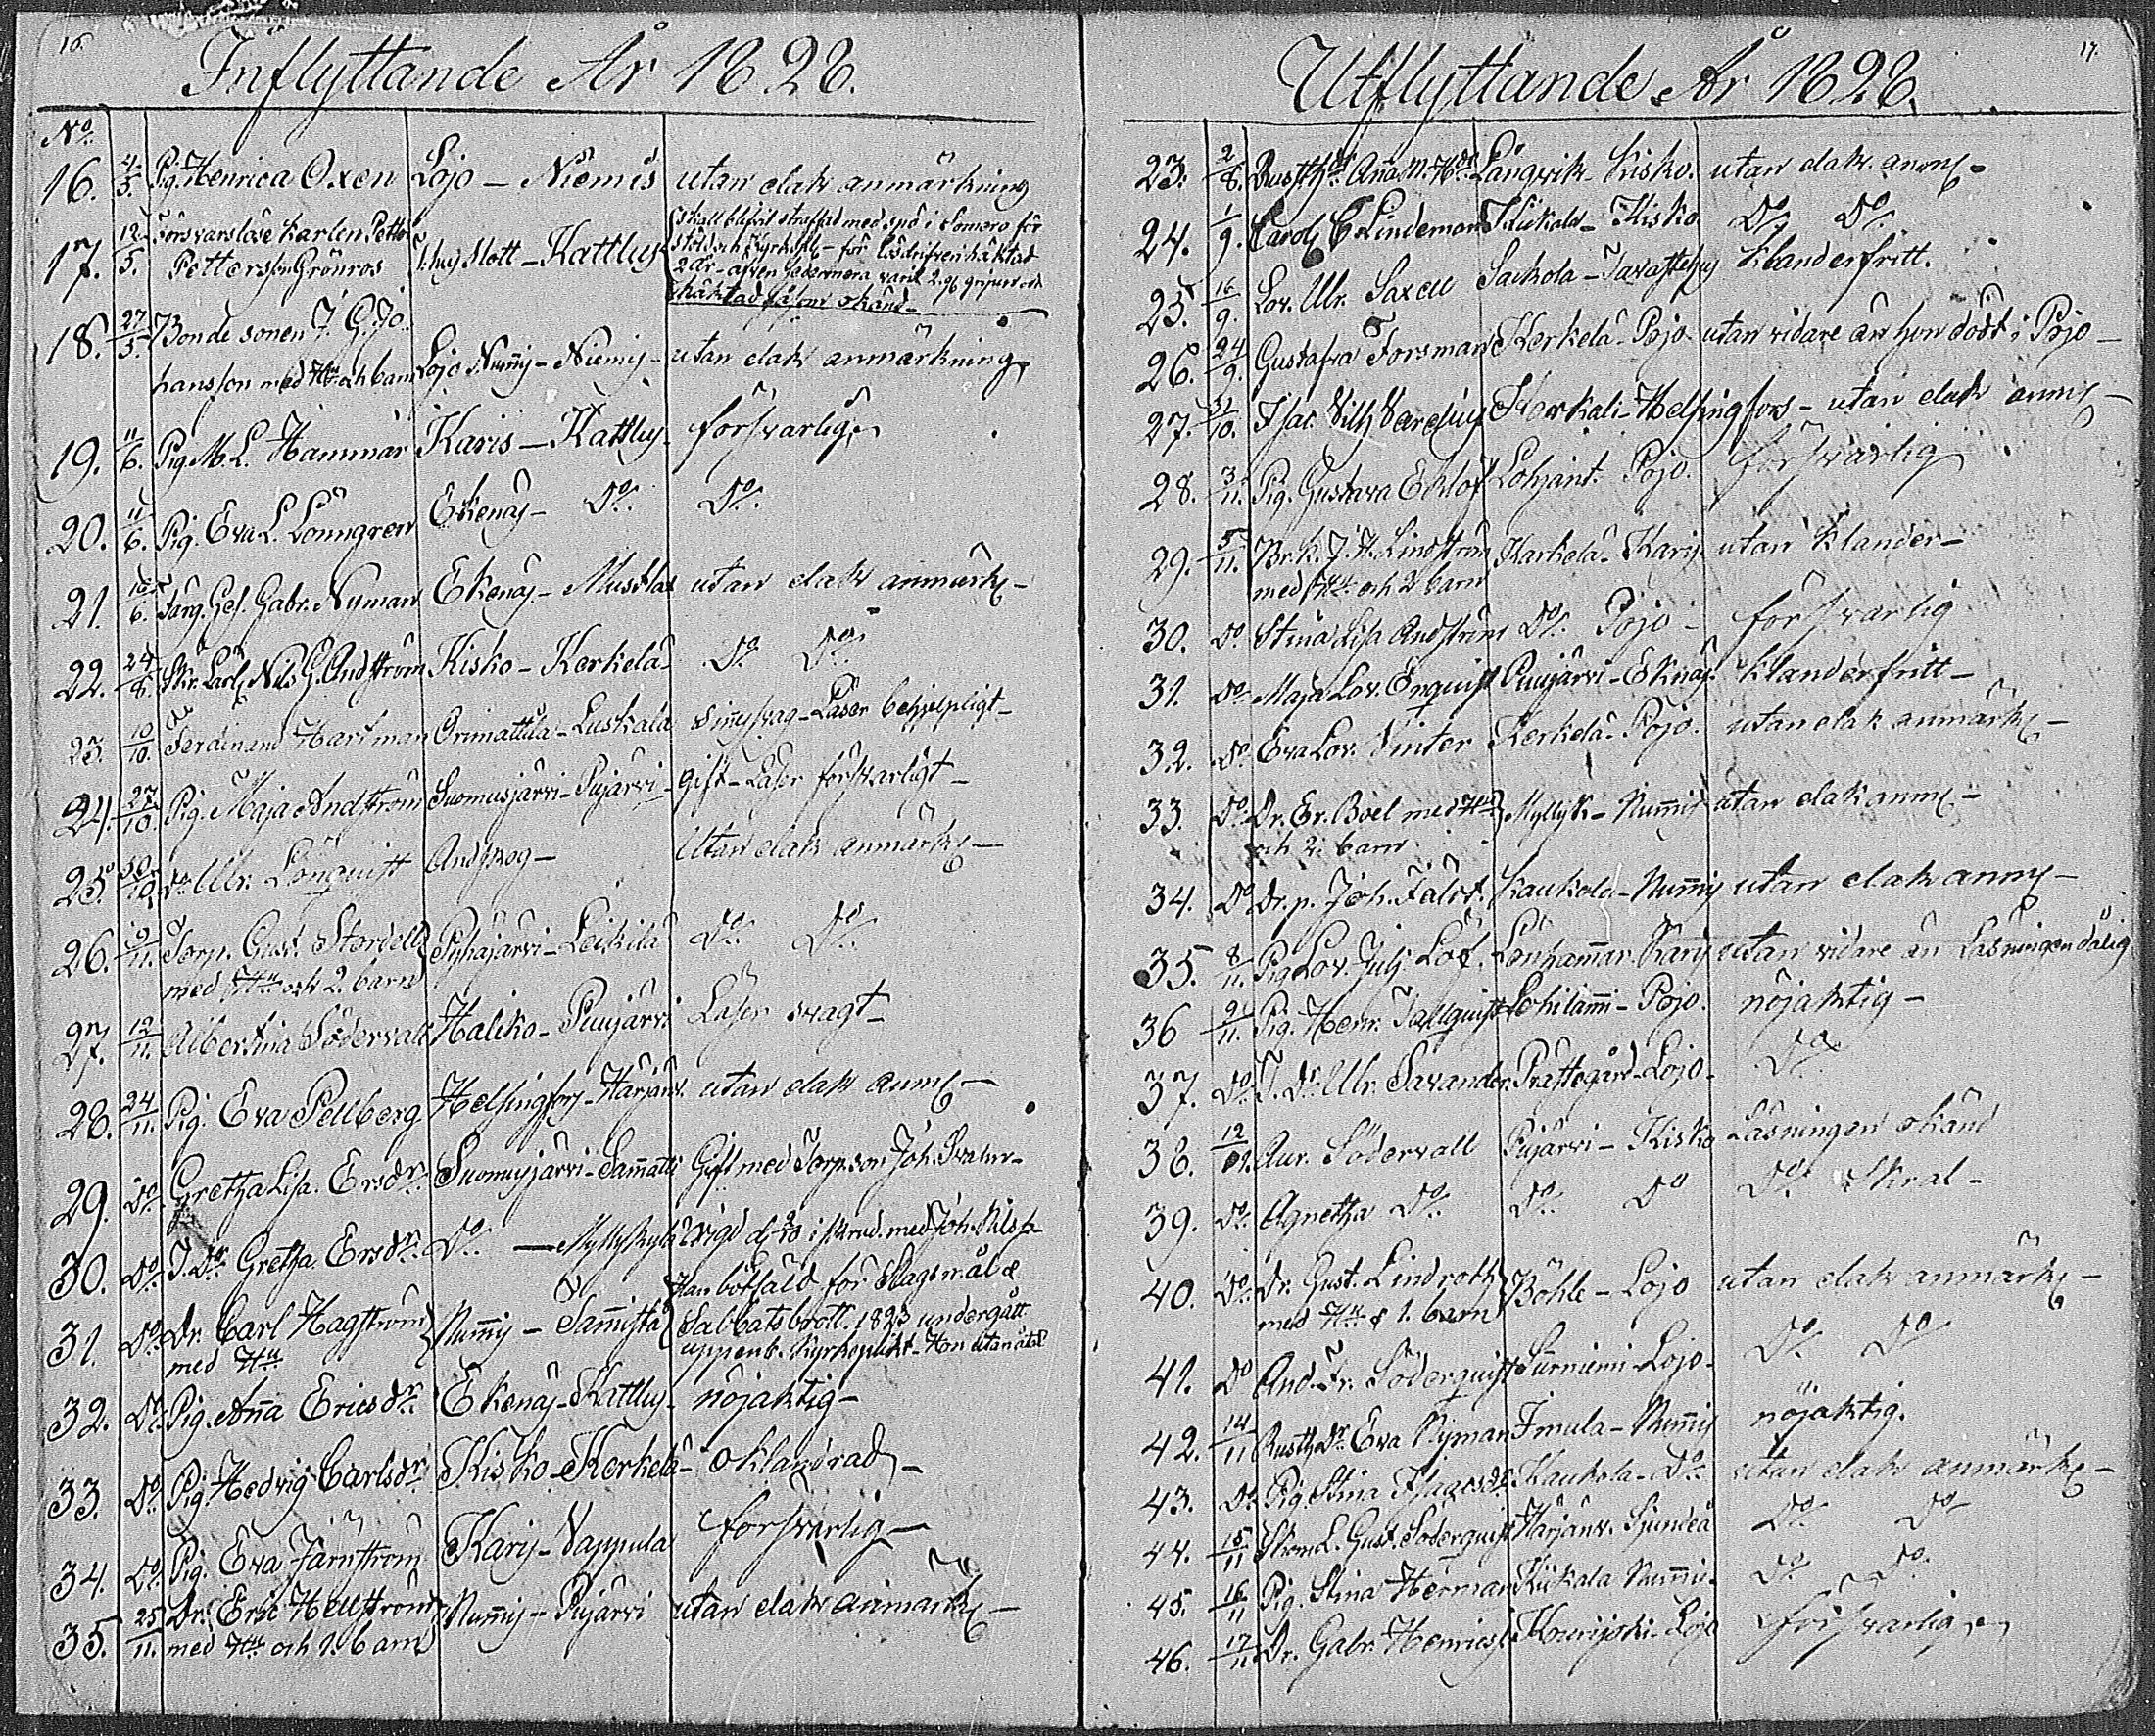 16.
Inflyttande År 1828.
No.
16. 4/5. Pig. Henrica Oxen Lojo - Niemis utan elak anmärkning
17. 12/5. Försvarslöse Karlen Petter skall blifvit straffad med spö i Somero för
Pettersson Grönros slott - Kattlus stöld och - för lösdrifveri häktad
2 år - äfven sedermera varit gripen och
häktad såsom okänd -
18. 27/5. Bonde sonen J. G. Jo-
hansson med Hu och barn Lojo Numis - Niemis - utan elak anmärkning
19. 11/6. Pig. M. L. Hammar Karis - Kattlus - försvarlig
20. 11/6. Pig. Eva L. Lönngren Ekenäs - Do. Do.
21. 6. Färg. Ges. Gabr. Nyman Ekenäs - Muskla utan elak anmärk -
22. 24/8. Carl Nils G. Andström Kisko - Kerkelä - Do. Do.
23. 10/10. Ferdinand Hartman Orimattila - Luskala sinnssvag - Läser behjelpligt -
24. 27/10. Pig. Maja Andström Suomusjärvi - Pujärvi - gift - Läser försvarligt -
25. 30/10. Do. Ulr. Lönquist Andskog - Utan elak anmärk -
26. 9/11. Torp. Gust. Stordell Pyhäjärvi - Leikilä Do. Do.
med Hu och 2. barn
27. 12/11. Albertina Södervall Haliko - Puujärvi Läser svagt -
28. 24/11. Pig. Eva Pellberg Helsingfors - Harjanv. utan elak anm -
29. Do. Gretha Lisa. Ersdr. Suomusjärvi - Sammatti Gift med Torp.son Joh. Svahn -
30. Do. J. Dr. Gretha Ersdr. Do. - Myllykylä Vigd d. i skrud. med Joh. Nilss.
Han bötfäld för Slagsmål &
31. Do. Dr. Carl Hagström Numis - Sannistå Sabbatsbrott. 1823 undergått
med Hu uppenb. Kyrkoplikt - Hon utan åtal
32. Do. Pig. Anna Ericsdr. Ekenäs - Kattlus - nöjaktig -
33. Do. Pig. Hedvig Carlsdr. Kisko - Kerkelä - oklandrad -
34. Do. Pig. Eva Järnström Karis - Vappula försvarlig -
35. 25/11. Dr. Eric Hellström Numis - Pujärvi utan elak anmärk -
med Hu och 1. barn
17.
Utflyttande År 1828.
23. 2/8. Rusth. Anna M. Långvik - Kisko. utan elak. anm -
24. 1/9. Carol. C. Lindeman Kiikala - Kisko Do. Do.
25. 16/9. Lov. Ulr. Saxen Saikola - Tavastehus Klanderfritt.
26. 24/9. Gustafva Forsman Kerkelä - Pojo utan vidare än hon född i Pojo -
27. 31/10. F. Jac. Vilh. Varelius Kerkali - Helsingfors - utan elak anm -
28. 3/11. Pig. Gustava Eklöf Lohjant. Pojo. försvarlig
29. 5/11. Br. k. J. H. Lindström Karkelä - Karis utan klander -
med Hu. och 2 barn
30. Do Stina Lisa Andström Do. Pojo - försvarlig
31. Do Maja Lov. Enquist Puujärvi - Eknäs. Klanderfritt -
32. Do Eva Lov. Vinter Kerkelä - Pojo. utan elak anmärk -
33. Do Dr. Er. Boel med Hu Myllyk - Numis utan elak anm -
och 2. barn
34. Do Dr. p. Joh. Falst. Kaukola - Numis utan elak anm -
35. 8/11. Pig Lov. Julj. Löf. Lönhammar. Karis utan vidare än Läsningen dålig
36 9/11. Pig. Henr. Tallquist Lohilammi - Pojo. nöjaktig -
37. Do. J. Dr. Ulr. Savander. Prästegård - Lojo - Do.
38. 12/11. Aur. Södervall Pujärvi - Kisko Läsningen okänd
39. Do. Agnetha Do. Do. Do Do. Skral -
40. Do. Dr. Gust. Lindroth Böhle - Lojo utan elak anmärk -
med Hu & 1. barn
41. Do And. Fr. Söderquist Surniemi - Lojo - Do. Do
42. 14/11 Rusth.dr. Eva Nyman Imula - Numis nöjaktig.
43. Do. Pig. Stina Kaukola - Do. utan elak anmärk -
44. 15/11 L. Gust. Söderquist Harjanv. Sjundeå Do. Do
45. 16/11 Pig. Stina Herman Kiikala Numis - Do. Do.
46. 17/11. Dr. Gabr. Henricss. Kourijoki - Lojo försvarlig